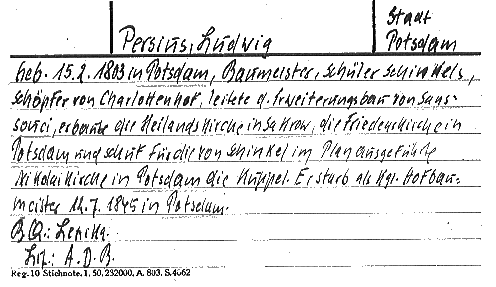 Stadt
Persius, Ludwig Potsdam
Geb. 15.2.1803 in Potsdam, Baumeister, Schüler Schinkels,
Schöpfer von Charlottenhof, leitete d. Erweiterungsbau von Sans-
souci, erbaute die Heilandskirche in Sakrow, die Friedenskirche in
Potsdam und schuf für die von Schinkel im Plan ausgeführte
Nikolaikirche in Potsdam die Kuppel. Er starb als Kgl. Hofbau-
meister 12.7.1845 in Potsdam.
B.Qu.: Lexika
Lit.: A.D.B.
Reg. 10 Stichnote. 1, 50, 232000, A. 803. S. 4062